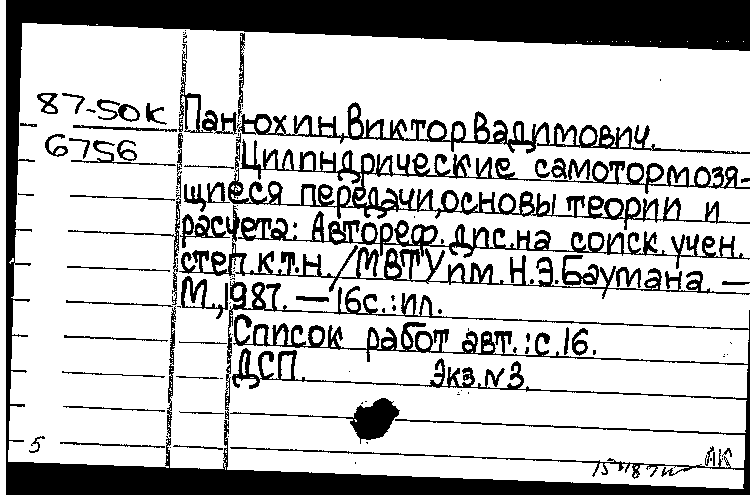 87-50К Панюхин, Виктор Вадимович.
6756 Цилиндрические самотормозя-
щиеся передачи, основы теории и
расчета: Автореф. дис. на соиск. учен.
степ. к.т.н. /МВТУ им. Н.Э.Баумана. —
М., 1987. — 16с.: ил.
Список работ авт.: с.16.
ДСП. Экз.№3.
5
АК